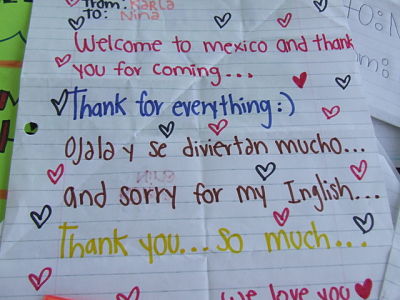 from: Karla
To: Nina
Welcome to mexico and thank
you for coming...
Thank for everything:)
Ojala y se diviertan mucho...
and sorry for my Inglish...
Thank you...so much...
We love you